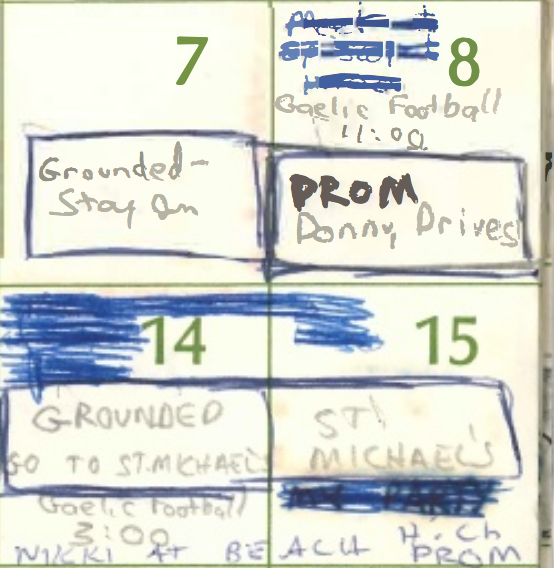 7
8
Gaelic Football
11:00
Grounded-
Stay In
PROM
Donny Drives
14
15
GROUNDED
GO TO ST.MICHAEL'S
ST.
MICHAEL'S
Gaelic Football
3:00
PARTY
NIKKI AT BEACH
H.Ch
PROM